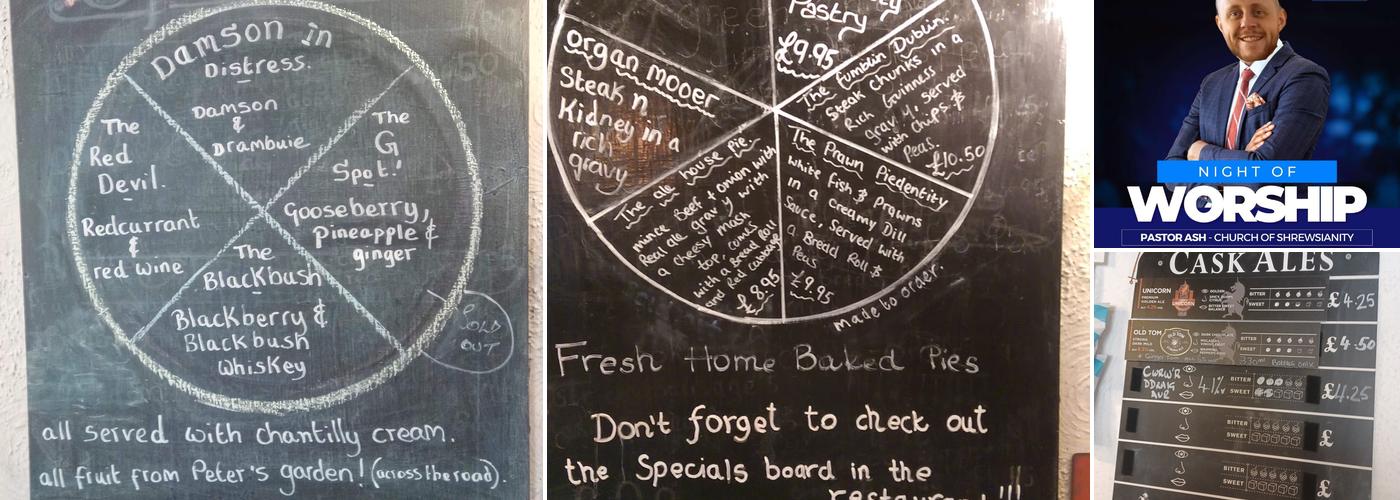 Damson in
Distress.
Damson
&
Drambuie
The
Red
Devil.
Redcurrant
&
red wine
The
G
Spot!
Gooseberry,
Pineapple &
ginger
The
Blackbush
Blackberry &
Blackbush
Whiskey
SOLD
OUT
all served with chantilly cream.
all fruit from Peter's garden! (across the road).
Pastry
£9.95
organ mooer
Steak n
Kidney in a
rich
gravy
The fumblin Dublin.
Steak chunks in a
Rich Guinness
gravy, served
with chips &
Peas.
£10.50
The ale house pie.
mince Beef + onion with
Real ale gravy with
a cheesy mash
top, comes
with a Bread Roll
and Red cabbage
£8.95
The Prawn Piedentity
white fish & Prawns
in a creamy Dill
Sauce, Served with
a Bread Roll &
Peas
£9.95
made to order.
Fresh Home Baked Pies
Don't forget to check out
the Specials board in the
restaurant!!!
NIGHT OF
WORSHIP
PASTOR ASH - CHURCH OF SHREWSIANITY
CASK ALES
UNICORN
PREMIUM
GOLDEN ALE
UNICORN
GOLDEN
BITTER
SWEET
£4.25
OLD TOM
STRONG
DARK ALE
OLD TOM
BITTER
SWEET
£4.50
330ml Bottles only
CWRW'R
DDRAIG
AUR
4.1%v
BITTER
SWEET
£4.25
BITTER
SWEET
£
BITTER
SWEET
£